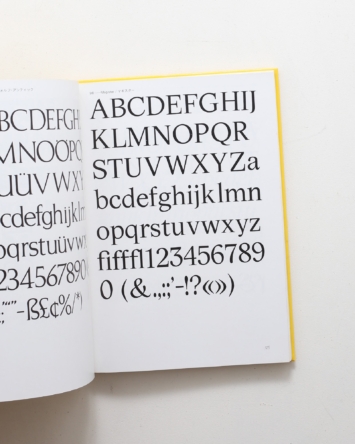 BCDEFGH
MNOÖPQ
UÜVWX
cdefghijkl
qrstuüvw
234567890
;""-ߣ¢%/*)
ABCDEFGHIJ
KLMNOPQR
STUVWXYZa
bcdefghijklmn
opqrstuvwxyz
fiffffl123456789
0 (&.,:;'-!?«»)